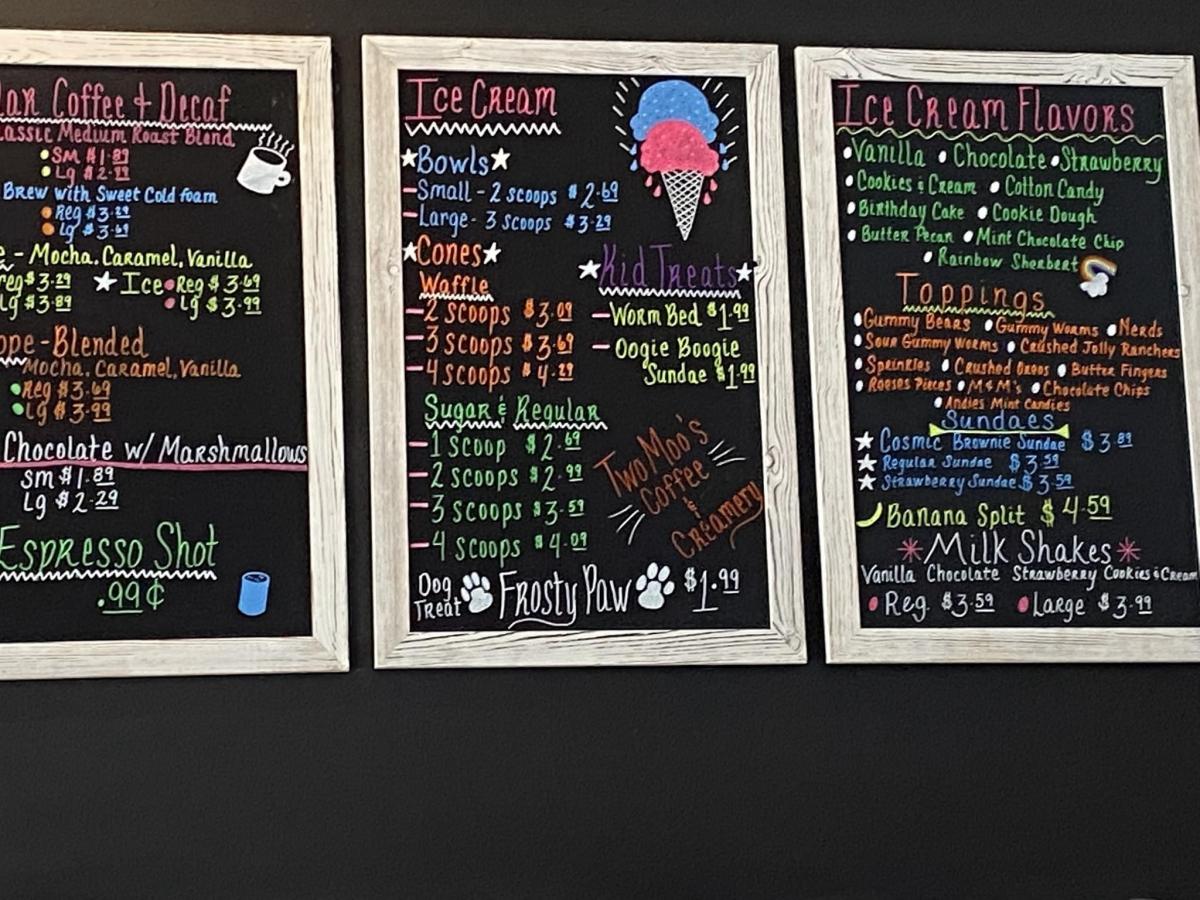 Coffee & Decaf
Classic Medium Roast Blend
Sm $1.89
Lg $2.29
Brew with Sweet Cold foam
Reg $3.29
Lg $3.69
- Mocha, Caramel, Vanilla
reg $3.29 Ice Reg $3.69
lg $3.89 Lg $3.99
-Blended
Mocha, Caramel, Vanilla
Reg $3.69
Lg $3.99
Chocolate w/ Marshmallows
Sm $1.89
Lg $2.29
Espresso Shot
.99¢
Ice Cream
Bowls
Small - 2 scoops $2.69
Large - 3 scoops $3.29
Cones
Waffle
2 scoops $3.09
3 scoops $3.69
4 scoops $4.29
Sugar & Regular
1 scoop $2.69
2 scoops $2.99
3 scoops $3.59
4 scoops $4.09
Kid Treats
Worm Bed $1.99
Oogie Boogie
Sundae $1.99
Two Moo's
Coffee
&
Creamery
Dog Treat Frosty Paw $1.99
Ice Cream Flavors
Vanilla Chocolate Strawberry
Cookies & Cream Cotton Candy
Birthday Cake Cookie Dough
Butter Pecan Mint Chocolate Chip
Rainbow Sherbert
Toppings
Gummy Bears Gummy Worms Nerds
Sour Gummy Worms Crushed Jolly Ranchers
Sprinkles Crushed Oreos Butter Fingers
Reeses Pieces M&M's Chocolate Chips
Andies Mint Candies
Sundaes
Cosmic Brownie Sundae $3.89
Regular Sundae $3.59
Strawberry Sundae $3.59
Banana Split $4.59
Milk Shakes
Vanilla Chocolate Strawberry Cookies & Cream
Reg. $3.59 Large $3.99